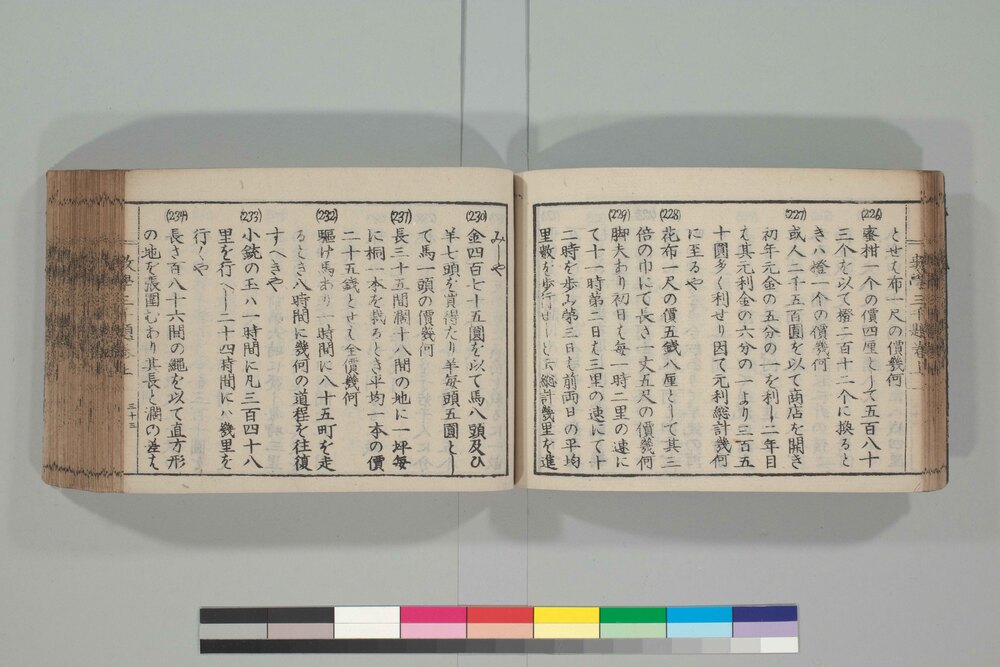 とせば布一尺の價幾何
(226)
蜜柑一个の價四厘として五百八十
三个を以て橙二百十二个に換ると
きハ橙一个の價幾何
(227)
或人二千五百圓を以て商店を開き
初年元金の五分の一を利し二年目
ハ其元利金の六分の一より三百五
十圓多く利せり因て元利総計幾何
に至るや
(228)
花布一尺の價五錢八厘として其三
倍の巾にて長さ一丈五尺の價幾何
(229)
脚夫あり初日ハ每一時二里の速に
て十一時第二日ハ三里の速にて十
二時を歩み第三日も前兩日の平均
里數を歩行せしと云総計幾里を進
みしや
(230)
金四百七十五圓を以て馬八頭及ひ
羊七頭を買得たり羊每頭五圓とし
て馬一頭の價幾何
(231)
長三十五間濶十八間の地に一坪每
に桐一本を栽るとき平均一本の價
二十五錢とせば全價幾何
(232)
驅け馬あり一時間に八十五町を走
るとき八時間に幾何の道程を往復
すへきや
(233)
小銃の玉ハ一時間に凡三百四十八
里を行くべし二十四時間にハ幾里を
行くや
(234)
長さ百八十六間の繩を以て直方形
の地を張圍むあり其長と濶の差ハ
三十三